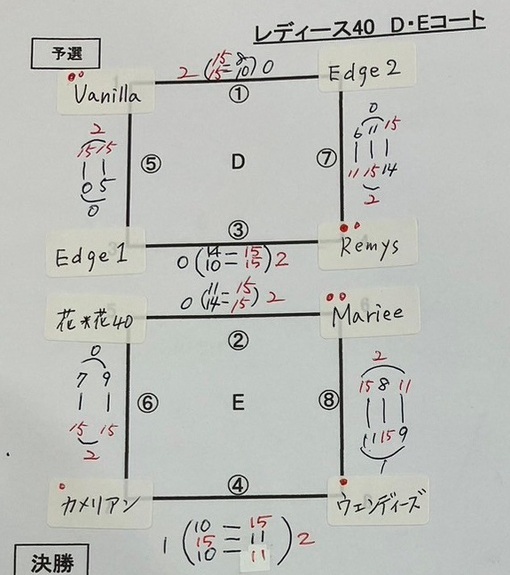 レディース40 D・Eコート
予選
2 (15-8 15-10) 0
Vanilla
Edge2
①
2
15 15
0 5
0
⑤
D
⑦
0
6 11 15
11 15 14
2
③
Edge1
Remys
0 (14=15 10=15) 2
0 (11=15 14=15) 2
花*花40
Mariee
②
0
7 9
15 15
2
⑥
E
⑧
2
15 8 11
11 15 9
1
④
カメリアン
ウェンディーズ
1 (10=15 15=11 10=11) 2
決勝